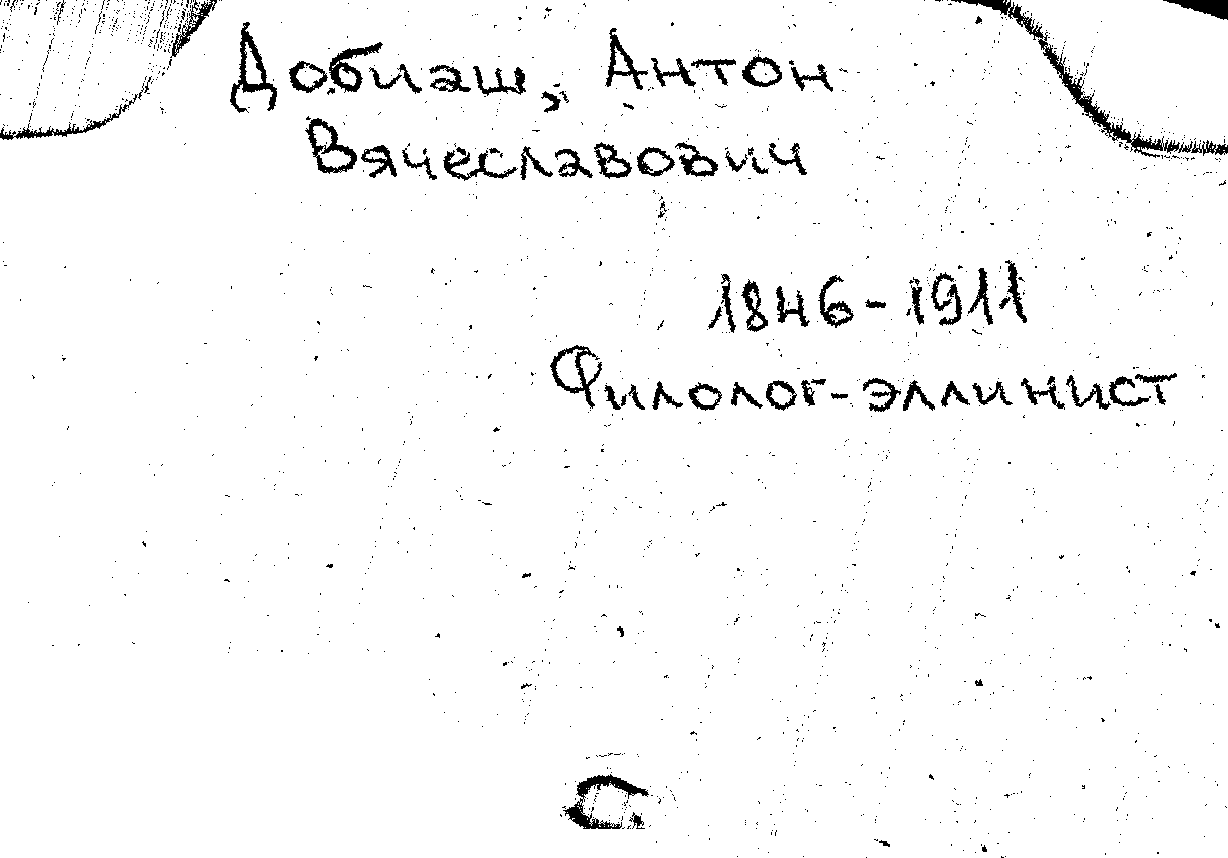 Добиаш, Антон
Вячеславович
1846-1911
Филолог-эллинист